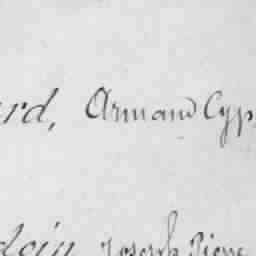 ard, Armand Cyp
doin Joseph Pierre